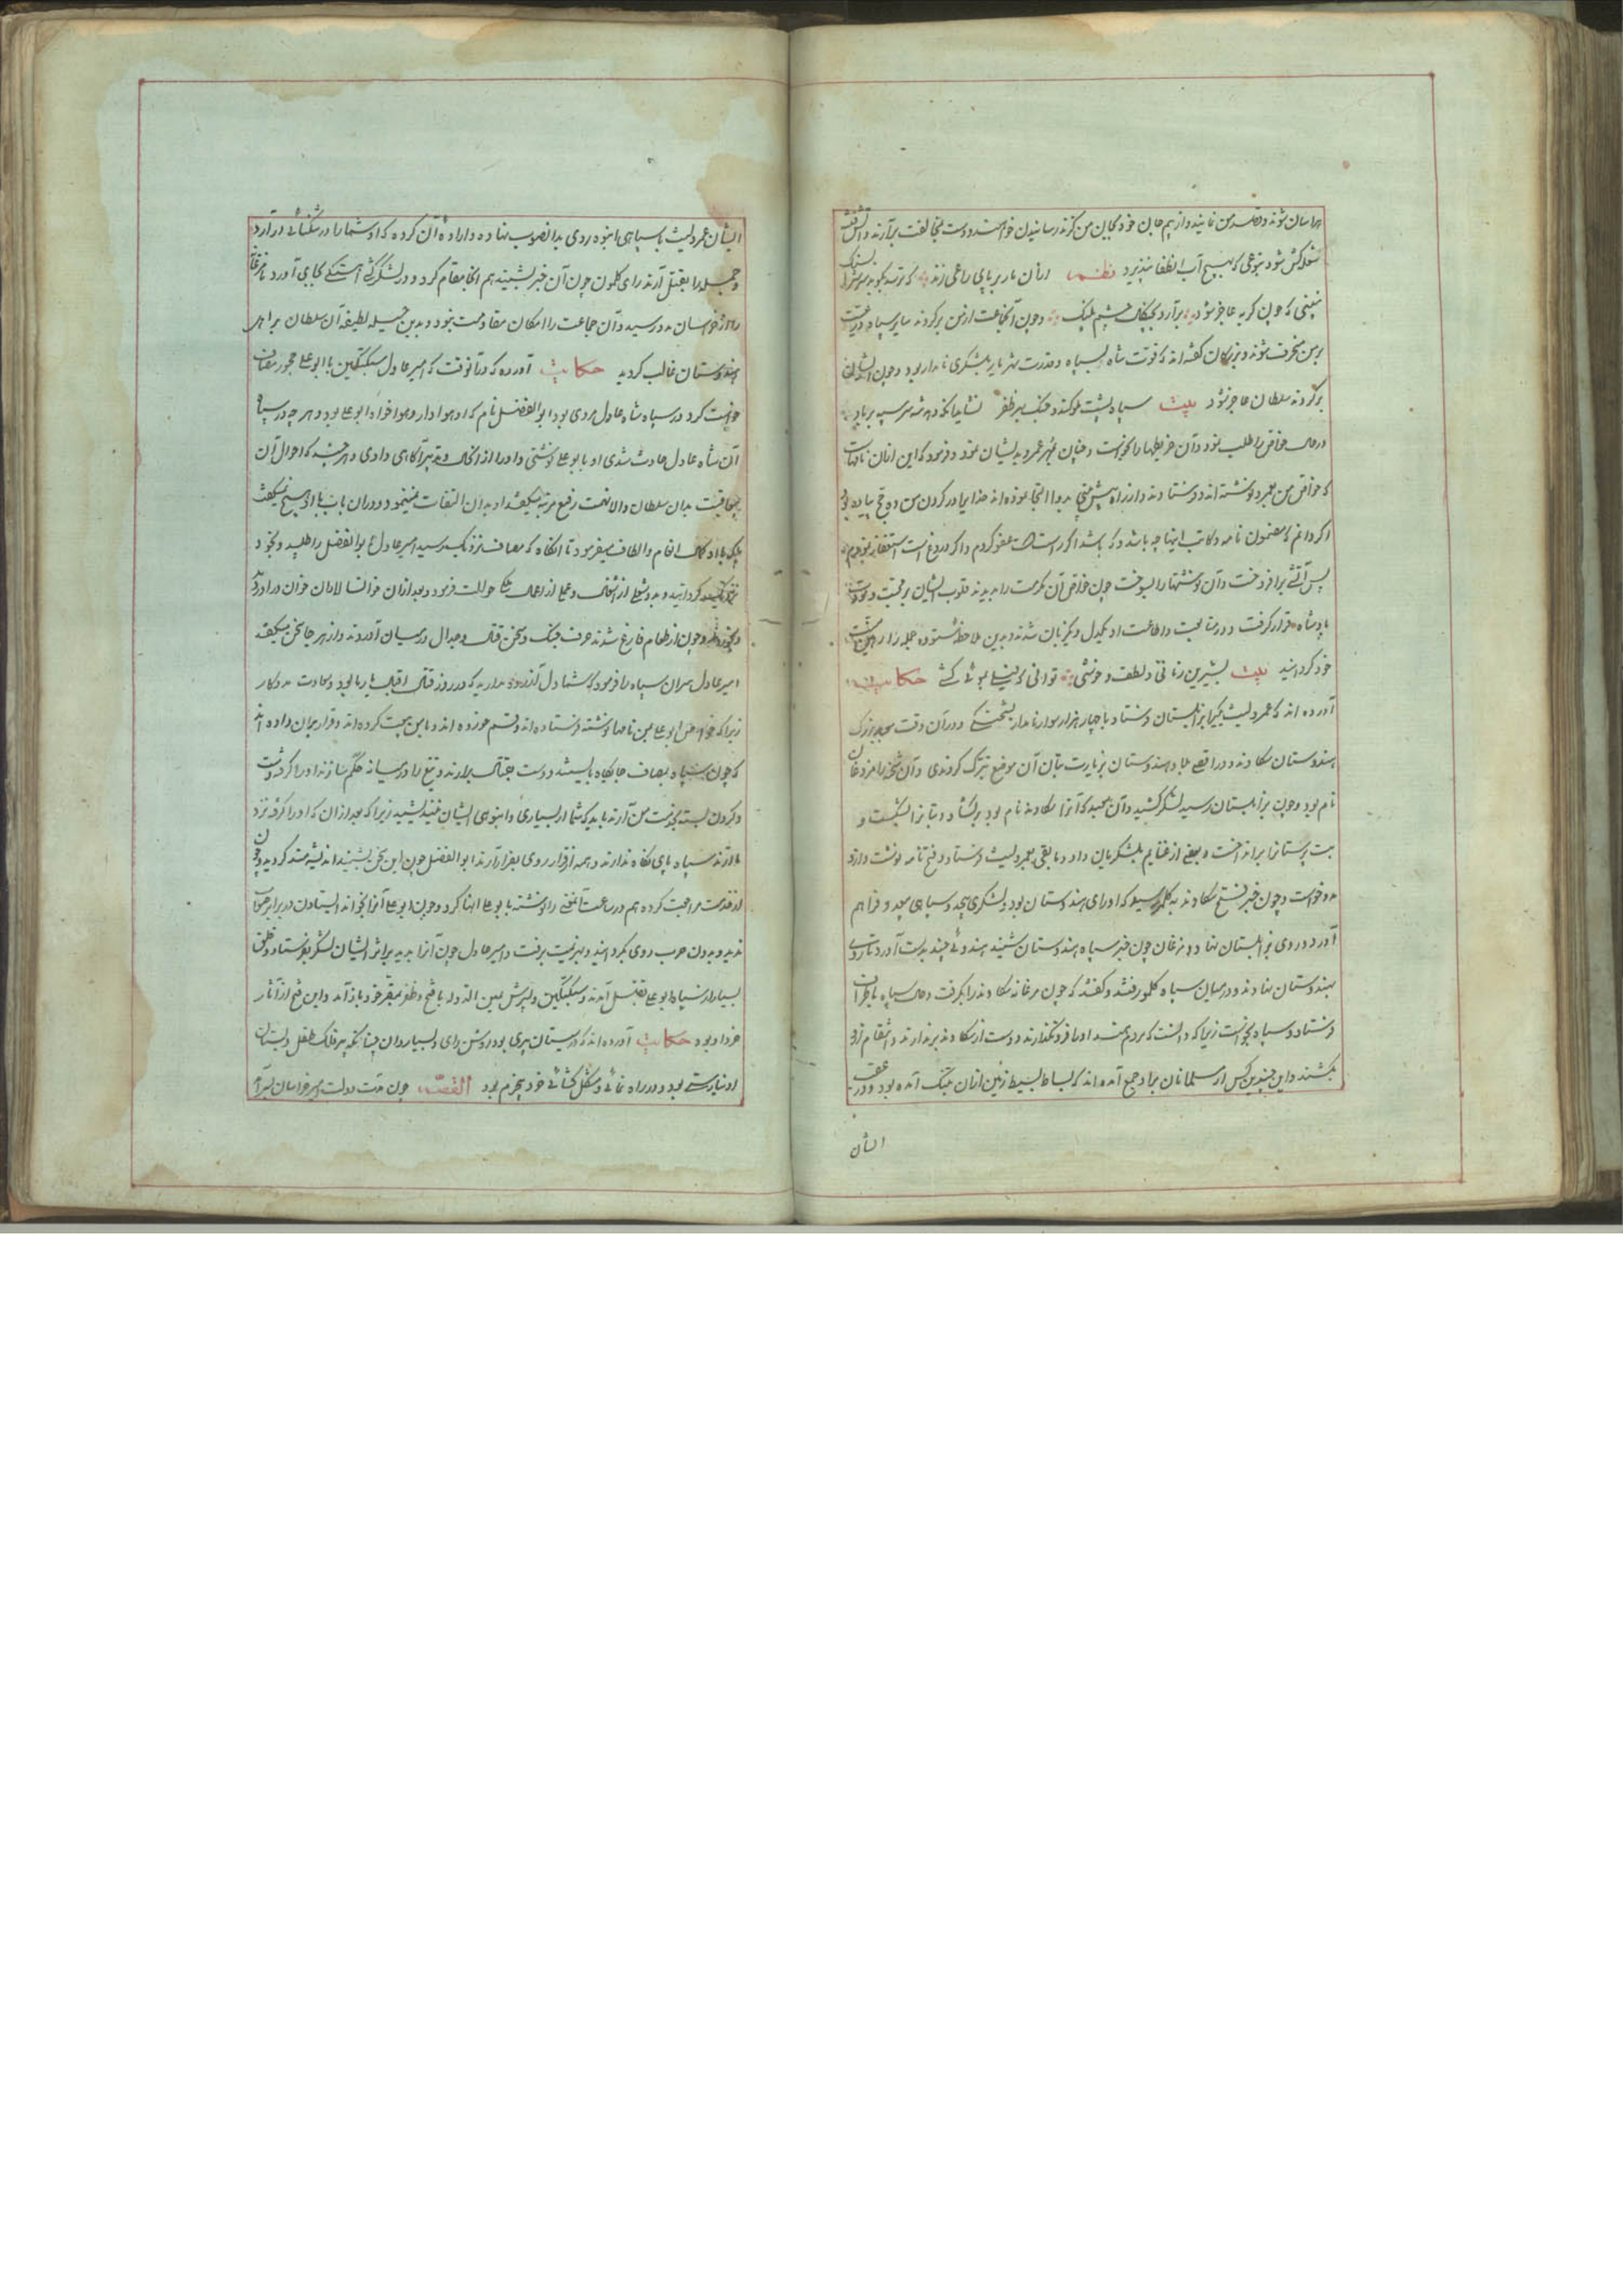 هراسان شوند و قصد من نمایند و از بیم جان خود بجان من گزند رسانیدن خواهند و دست بمخالفت برآرند و آتش فتنه
شعله کش شود بنوعی که بهیچ آب انطفا نپذیرد نظم ازان مار بر پای راعی زند که ترسد بکوبد سرش را بسنگ
نبینی که چون گربه عاجز شود برآرد بچنگال چشم پلنگ و چون آنجماعت از من برگردند سایر سپاه و رعیت
بر من منحرف شوند و بزرگان گفته اند که قوت شاه بسپاه و قدرت شهریار بلشکری نامدار بود و چون ایشان
برگردند سلطان عاجز شود بیت سپاه پشت ملوکند و جنگ بهر ظفر
در حال خواص را طلب نمود و آن خریطها را بخواست و همچنان بمهر عمرو بدیشان نمود و فرمود که این ازان نامهاست
که خواص من بعمرو نوشته اند و فرستاده
اگر دانم که مضمون نامه و کاتب اینها چه باشد و که باشد اگر راست است عفو کردم و اگر دروغ است استغفار نمودم
پس آتشی برافروخت و آن نوشتها را بسوخت چون خواص آن مکرمت را بدیدند قلوب ایشان بر محبت و مودت
پادشاه قرار گرفت و در متابعت و اطاعت او یکدل و یکزبان شدند و بدین ملاحظه ستوده جمله را رهین منت
خود گردانید بیت بشیرین زبانی و لطف و خوشی توانی که پیلی بموئی کشی حکایت
آورده اند که عمرو لیث بزابلستان فرستاد با چهار هزار سوار نامدار بشحنگی و در آن وقت معبد بزرگ
هندوستان سکاوند و در اقصی بلاد هندوستان بزیارت بتان آن موضع تبرک کردندی و آن شحنه را فردغان
نام بود و چون بزابلستان رسید لشکر کشید و آن معبد که آنرا سکاوند نام بود برگشاد و بتانرا بشکست و
بت پرستانرا برانداخت و بعضی از غنایم بلشکریان داد و باقی بعمرو لیث فرستاد و فتح نامه نوشت و ازو
مدد خواست و چون خبر فتح سکاوند به کلمو رسید که او رای هندوستان بود لشکری بیحد و سپاهی بیعد فراهم
آورد و روی بزابلستان نهاد و فردغان چون خبر سپاه هندوستان شنید هندوئی چند بدست آورد تا روی
بهندوستان نهادند و در میان سپاه کلمو رفتند و گفتند که چون فردغان سکاوند را بگرفت در حال سپاه باطراف
فرستاد و سپاه بخواست زیرا که دانست که مردم هند او را فرونگذارند و دست از سکاوند برندارند و انتقام ازو
بکشند و این چندین کس از مسلمانان براو جمع آمده اند که بساط بسیط زمین ازان بتنگ آمده بود و در عقب
ایشان
ایشان عمرو لیث با سپاهی انبوه روی بدانصوب نهاده و اراده آن کرده که او شما را در تنگنائی درآرد
و جمله را بقتل آرند رای کلمون چون آن خبر بشنید هم آنجا مقام کرد و در لشکر کشی آهستگی بجای آورد تا فردغان
را از خراسان مدد رسید و آن جماعت را امکان مقاومت نبود و بدین حیله لطیفه آن سلطان بر اهل
هندوستان غالب گردید حکایت آورده که در آنوقت که امیر عادل سبکتگین با ابو علی سیمجور مصاف
خواست کرد در سپاه شاه عادل مردی بود ابو الفضل نام که او هوادار و هواخواه ابو علی بود و هر چه در سپاه
آن شاه عادل حادث شدی او بابو علی نوشتی و او را از آنحال و تدبیر آگاهی دادی و هر چند که احوال آن
بدان سلطان والا نهمت رفیع مرتبه میگفتند او بدان التفات نمینمود و در آن باب با او هیچ نمیگفت
بلکه با او کمال انعام و الطاف میفرمود تا آنگاه که مصاف نزدیک رسید امیر عادل ابو الفضل را طلبید و بخود
نزدیک گردانید و بدو شغلی از اشغال و عملی از اعمال ملک حوالت فرمود و بعد ازان خوانسالاران خوان درآوردند
و بخوردند و چون از طعام فارغ شدند حرف جنگ و سخن قتال و جدال در میان آوردند و از هر جا سخن میگفتند
امیر عادل سران سپاه را فرمود که شما دل آزرده مدارید که در روز قتال اقبال یار ما بود و سعادت مددکار
زیرا که خواص ابو علی بمن نامها نوشته فرستاده اند و قسم خورده اند و با من بیعت کرده اند و قرار بران داده اند
که چون سپاه بمصاف جایگاه بایستند دست بقتال برآرند و تیغ را در میانه حکم سازند او را گرفته دست
و گردن بسته بخدمت من آرند باید که شما از بسیاری و انبوهی ایشان نیندیشید زیرا که بعد ازان که او را گرفته نزد
ما آرند سپاه پای نگاه ندارند و همه از قرار روی بفرار آرند ابو الفضل چون این سخن بشنید اندیشه مند گردید و چون
از خدمت مراجعت کرده هم در ساعت آنمعنی را نوشته بابو علی انها کرد و چون ابو علی آنرا بخواند ایستادن در برابر صواب
ندید و بدون حرب روی بگردانید و بهزیمت برفت و امیر عادل چون آنرا بدید بر اثر ایشان لشکر بفرستاد و خلق
بسیار از سپاه ابو علی بقتل آمدند و سبکتگین و پسرش یمین الدوله با فتح و ظفر بمقر خود بازآمد و این فتح از آثار
خرد او بود حکایت آورده اند که در سیستان پیری بود روشن رای و بسیاردان چنانکه پیر فلک طفل دبستان
او نیارستی بود و در راه نمائی و مشکل گشائی خرد پیرم بود القصه چون مدت دولت امیر خراسان سرآمد